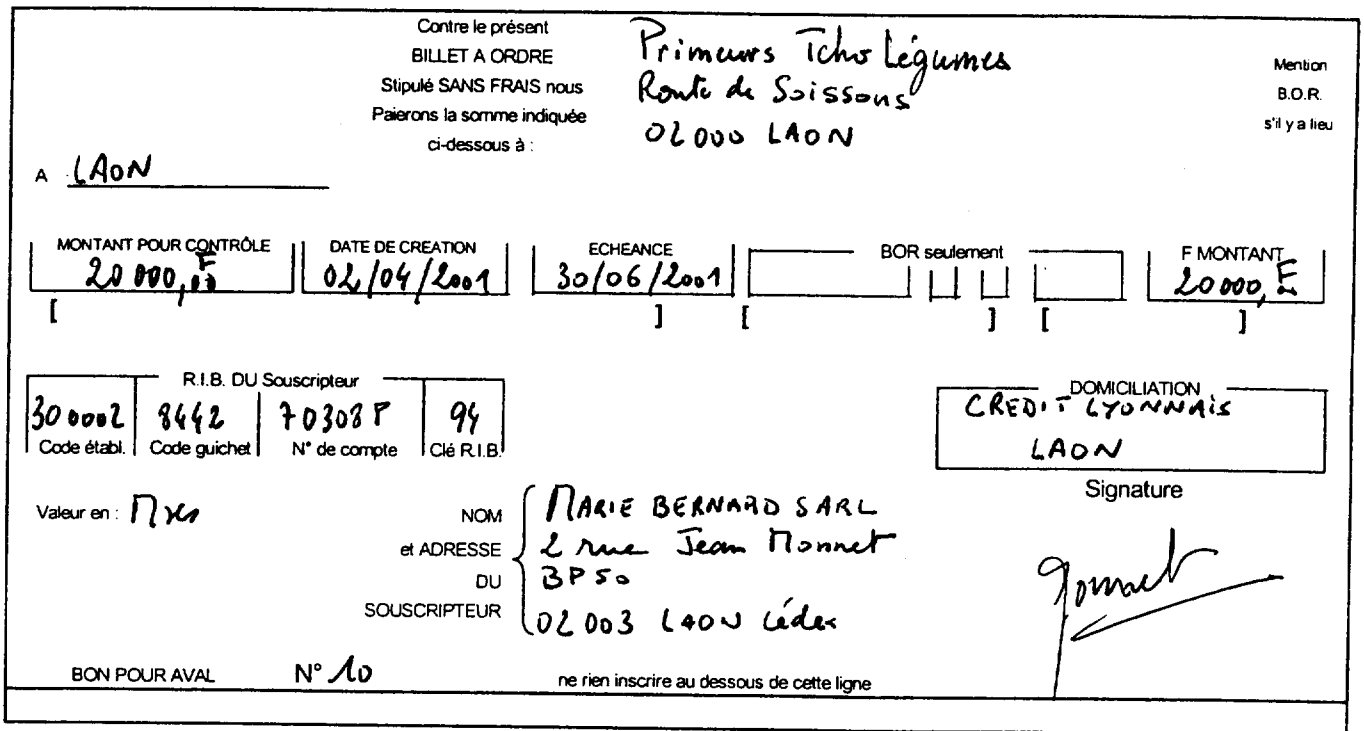 Contre le présent
BILLET A ORDRE
Stipulé SANS FRAIS nous
Paierons la somme indiquée
ci-dessous à :
Primeurs Tcho Légumes
Route de Soissons
02000 LAON
Mention
B.O.R.
s'il y a lieu
A LAON
MONTANT POUR CONTRÔLE
20 000,00 F
DATE DE CREATION
02/04/2001
ECHEANCE
30/06/2001
BOR seulement
F MONTANT
20 000, F
[ ] [ ] [ ]
R.I.B. DU Souscripteur
300002 8442 70308P 94
Code établ. Code guichet N° de compte Clé R.I.B.
DOMICILIATION
CREDIT LYONNAIS
LAON
Signature
Valeur en : Mses
NOM
et ADRESSE
DU
SOUSCRIPTEUR
MARIE BERNARD SARL
2 rue Jean Monnet
BP 50
02003 LAON Cédex
BON POUR AVAL N° 10 ne rien inscrire au dessous de cette ligne